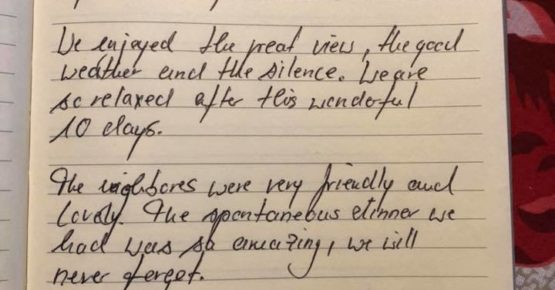 We enjoyed the great view, the good
weather and the silence. We are
so relaxed after this wonderful
10 days.
The neighbores were very friendly and
lovely. The spontaneous dinner we
had was so amazing, we will
never forget.